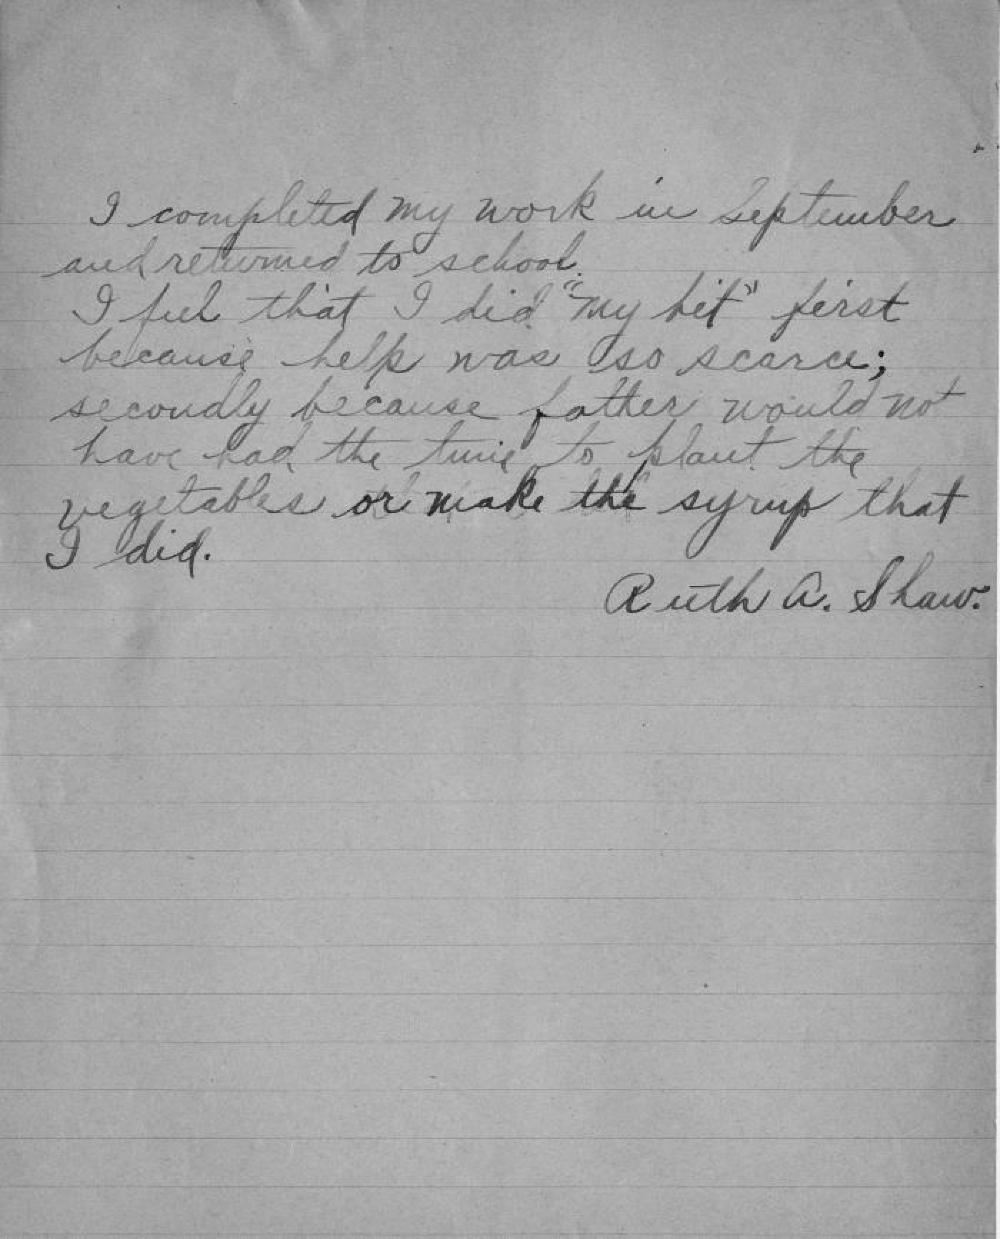 I completed my work in September
and returned to school.
I feel that I did "my bit" first
because help was so scarce;
secondly because father would not
have had the time to plant the
vegetables or make the syrup that
I did.
Ruth A. Shaw.